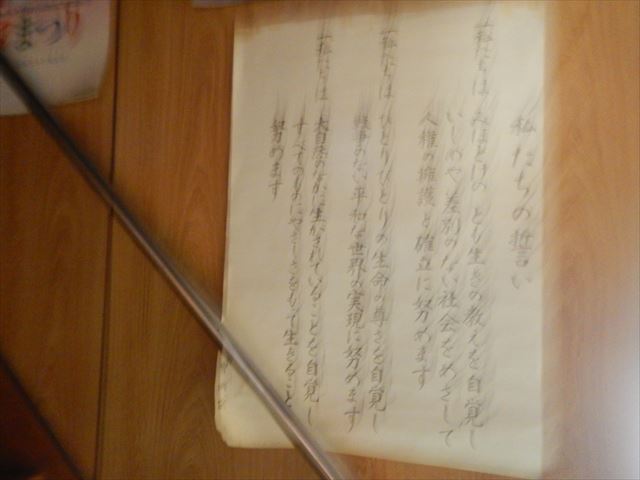 私たちの誓い
一 私たちは みほとけの とも生きの教えを自覚し
いじめや差別のない社会をめざして
人権の擁護と確立に努めます
一 私たちは ひとりひとりの生命の尊さを自覚し
戦争のない平和な世界の実現に努めます
一 私たちは 大自然のなかに生かされていることを自覚し
すべてのものにやさしさをもって生きること
努めます
まつり